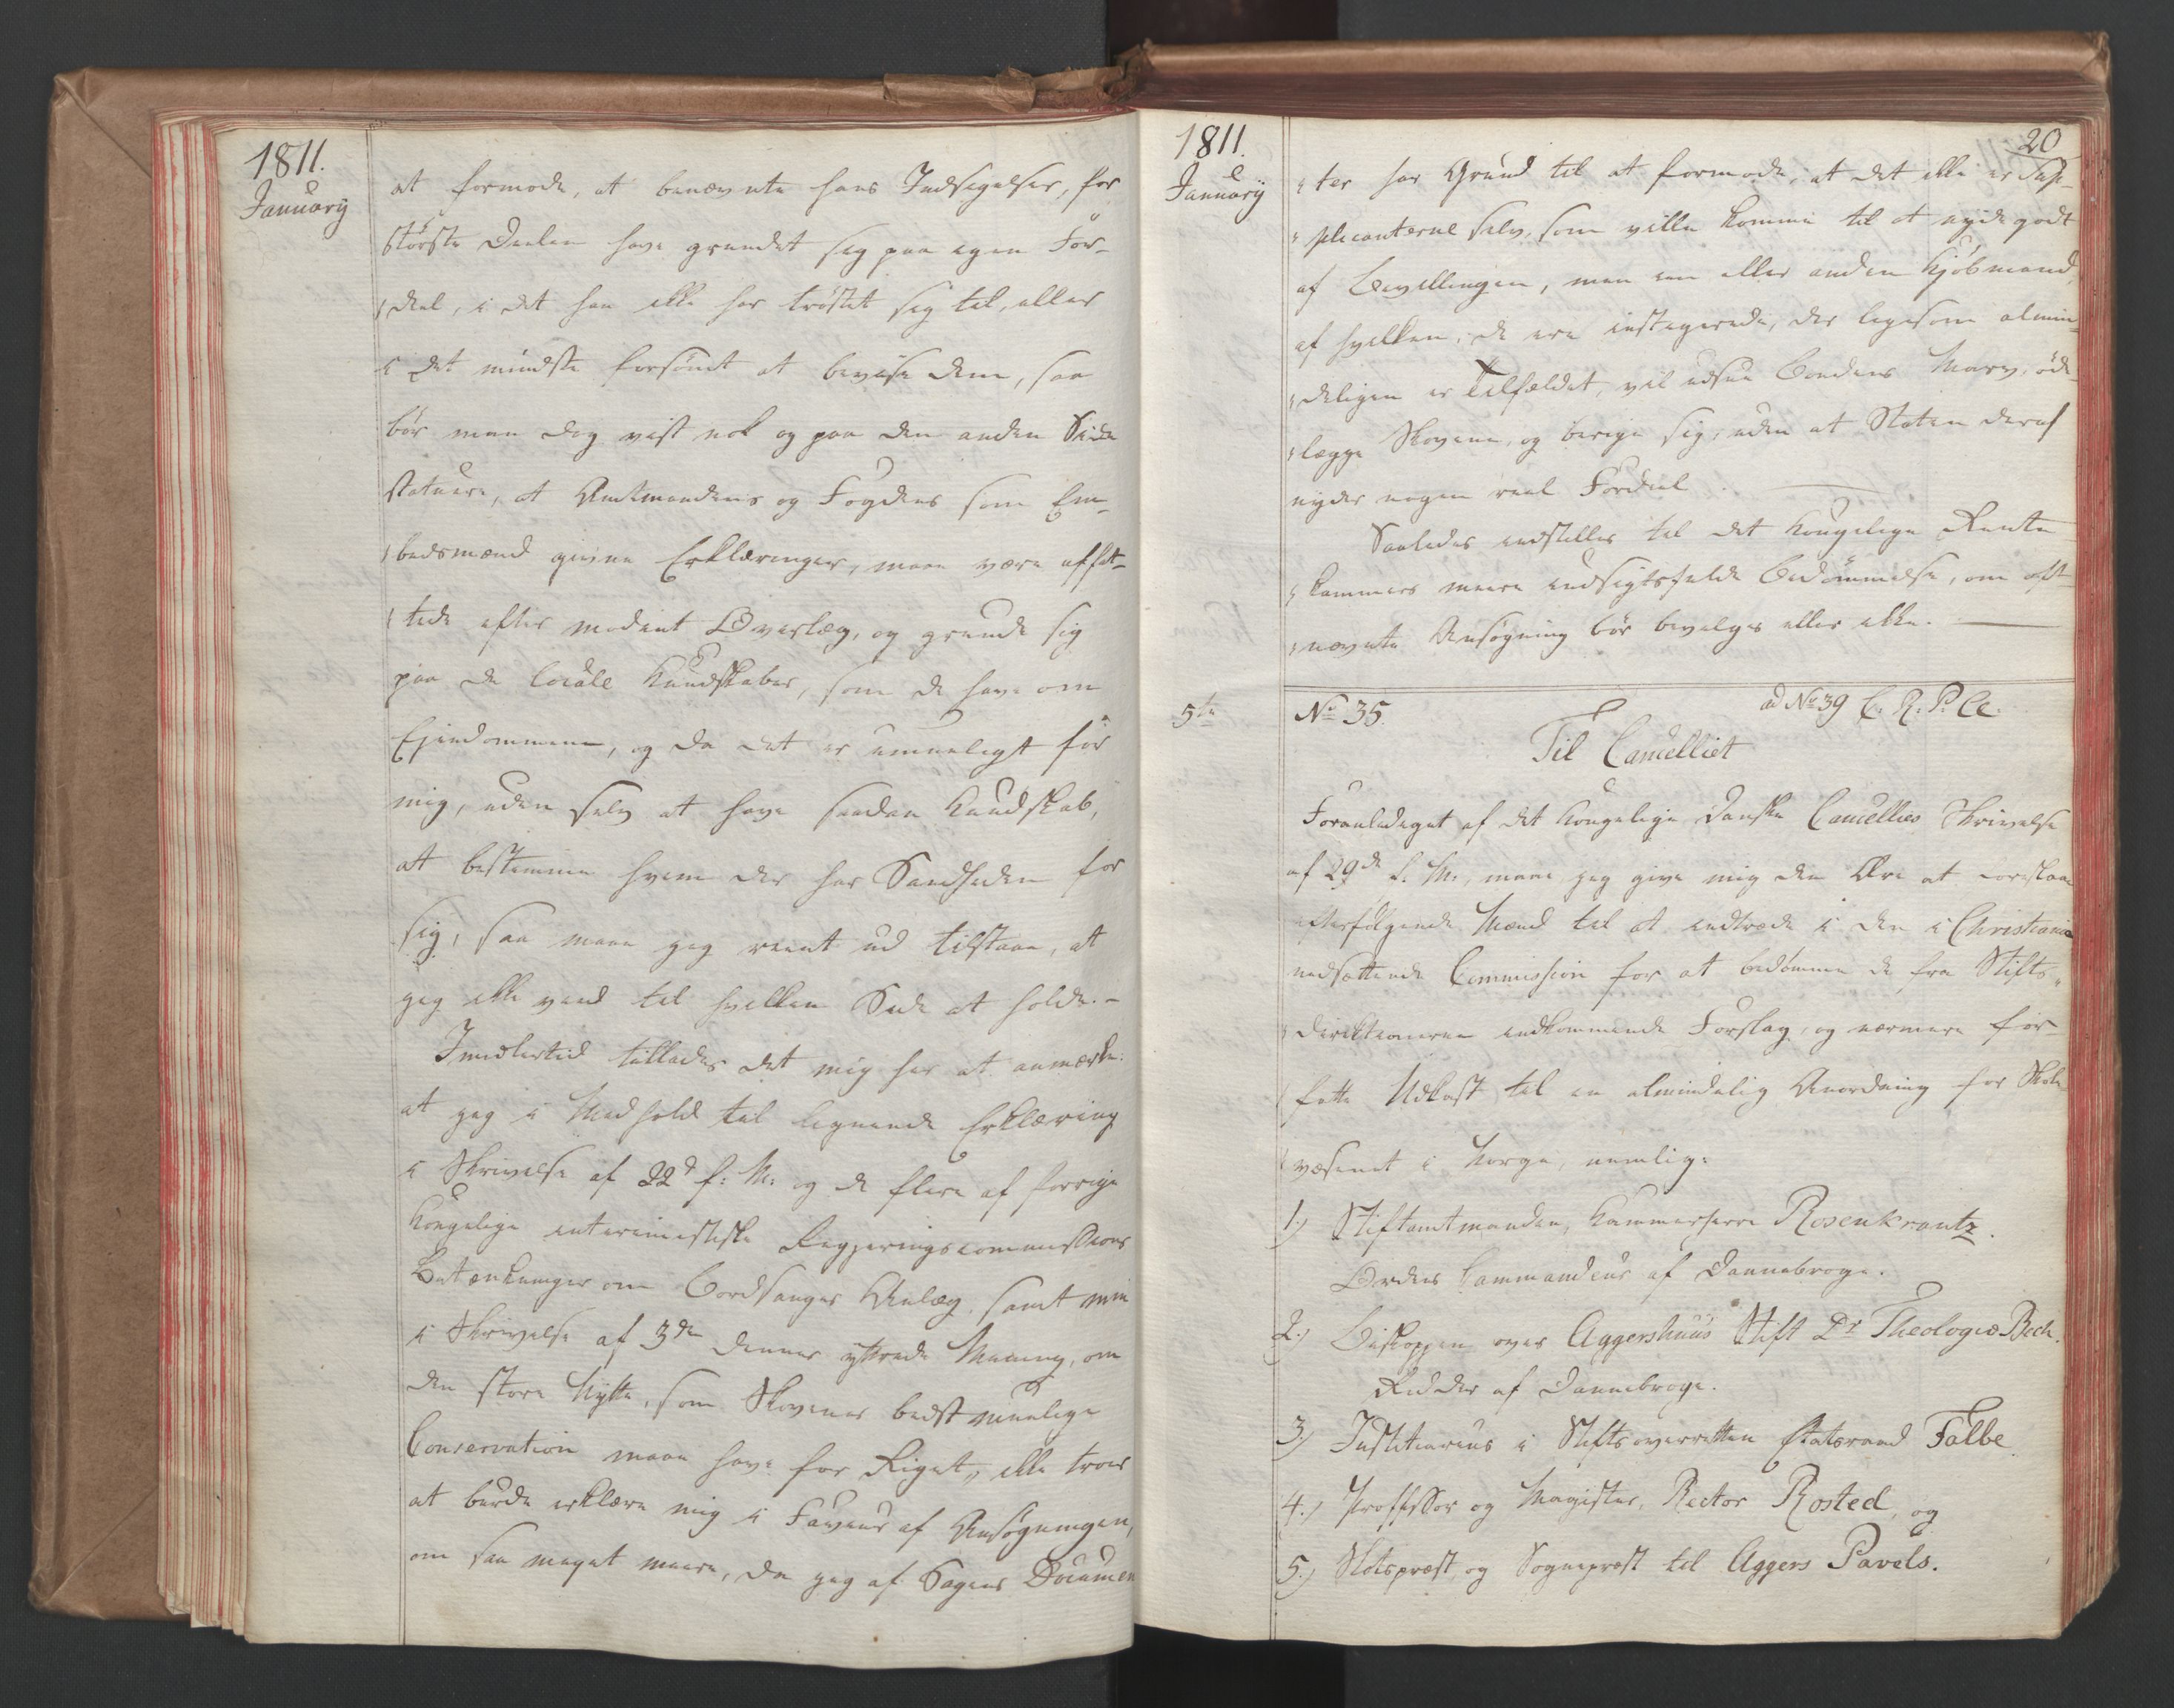 1811.
January
at formode, at benævnte hans Indsigelser, for
største Deelen have grundet sig paa egen For-
deel, i det han ikke har trøstet sig til, eller
i det mindste forsømt at bevise dem, saa
bør man dog vist nok og paa den anden Side
statuere, at Amtmandens og Fogdens som Em-
bedsmænd givne Erklæringer, maae være affat-
tede efter modent Overlæg, og grunde sig
paa de locale Kundskaber, som de have om
Ejendommene, og da det er umueligt for
mig, uden selv at have saadan Kundskab,
at bestemme hvem der har Sandheden for
sig, saa maae jeg reent ud tilstaae, at
jeg ikke veed til hvilken Side at holde.-
Imidlertid tillades det mig her at anmærke:
at jeg i Medhold til lignende Erklæring
i Skrivelse af 22d f: M: og de flere af forrige
Kongelige interimistiske Regjeringscommissions
Betænkninger om Bordsauges Anlæg, samt min
i Skrivelse af 3de dennes yttrede Mening, om
den store Nytte, som Skovenes bedst muelige
Conservation maae have for Riget, ikke troer
at burde erklære mig i Faveur af Ansøgningen,
om saa meget meere, da jeg af Sagens Documen
1811.
January
20
ter har Grund til at formode, at det ikke er Sup-
plicanterne selv, som ville komme til at nyde godt
af Bevillingen, men een eller anden Kjøbmand,
af hvilken, de ere instigerede, der ligesom almin-
deligen er Tilfældet, vil udsue Bondens Marv, øde-
lægge Skovene, og berige sig, uden at Staten deraf
nyder nogen reel Fordeel.
Saaledes indstilles til det Kongelige Rente
kammers meere indsigtsfulde Bedømmelse, om oft
nævnte Ansøgning bør bevilges eller ikke.
5te
No 35.
ad No 39 C. R. P. Cl.
Til Cancelliet
Foranlediget af det Kongelige Danske Cancellies Skrivelse
af 29de f. M., maae jeg give mig den Ære at foreslaae
efterfølgende Mænd til at indtræde i den i Christiania
nedsættende Commission for at bedømme de fra Stifts-
direktionerne indkommende Forslag, og nærmere for
fatte Udkast til en almindelig Anordning for Skole
væsenet i Norge, nemlig:
1.) Stiftamtmanden, Kammerherre Rosenkrantz.
Ordens Commandeur af Dannebroge.
2.) Biskoppen over Aggershuus Stift Dr Theologiæ Bech.
Ridder af Dannebroge.
3.) Justitiarius i Stiftsoverretten Etatsraad Falbe.
4.) Professor og Magister, Rector Rosted, og
5.) Slotspræst og Sognepræst til Aggers Pavels.